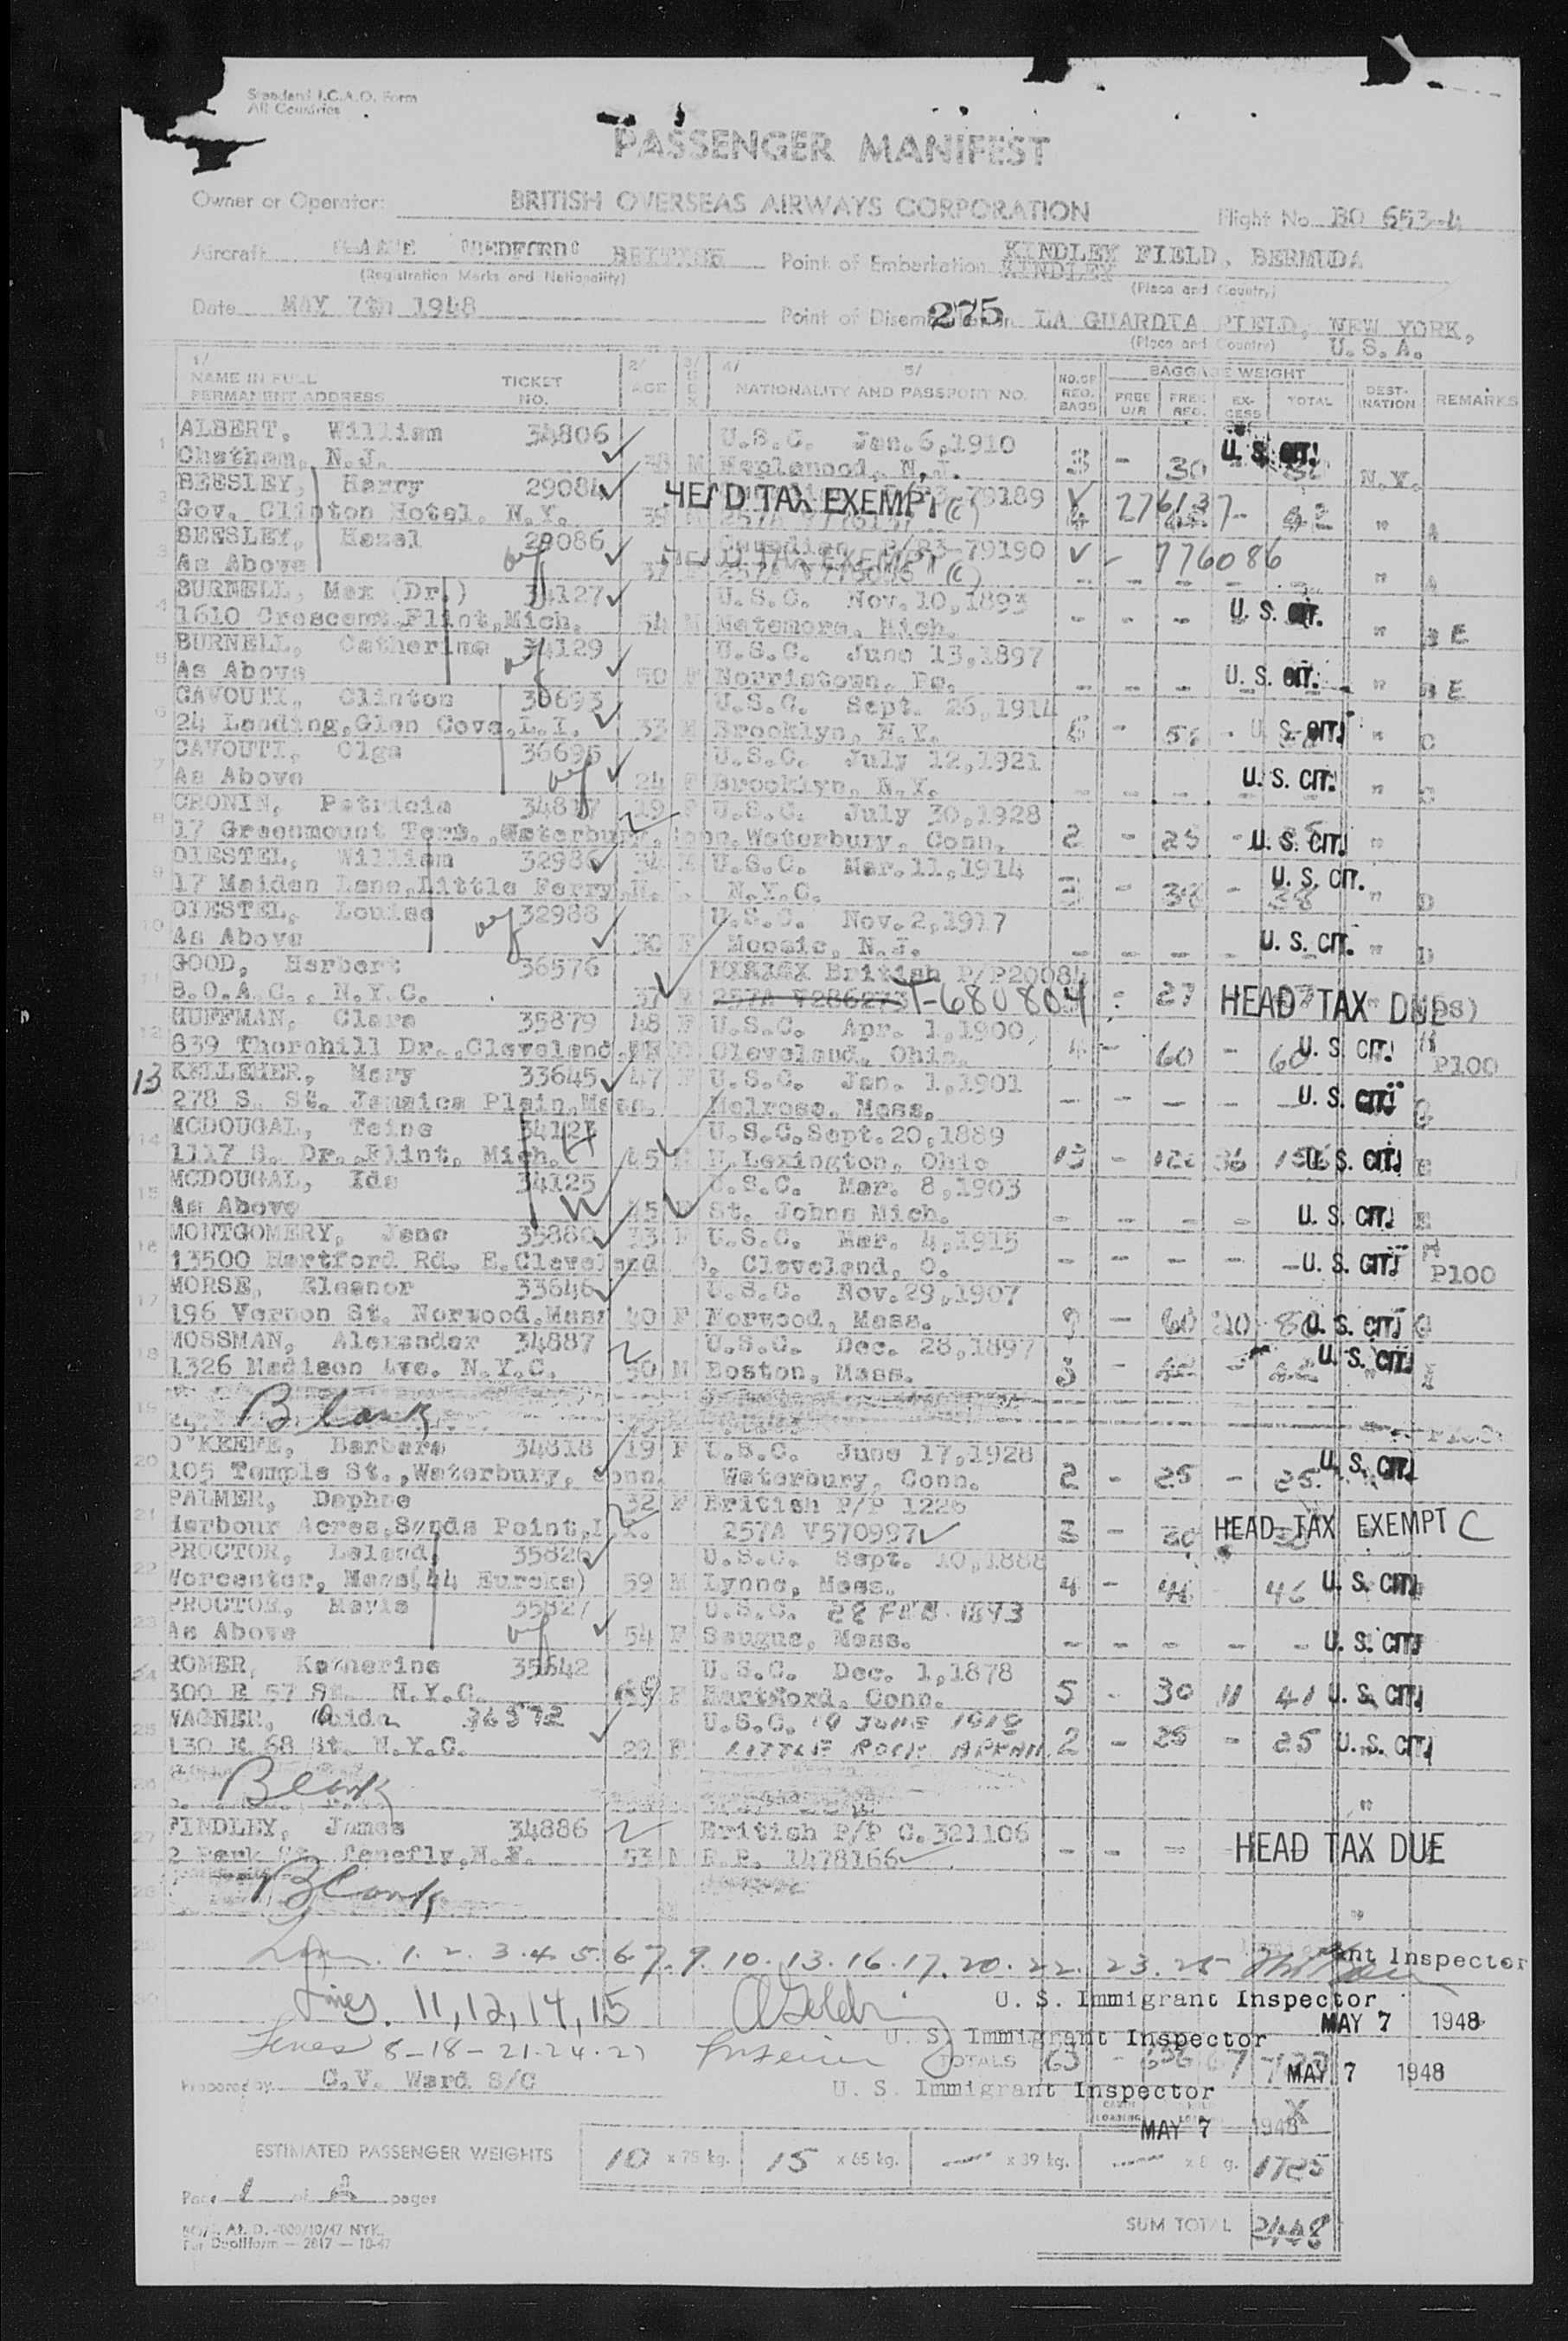 Standard I.C.A.O. Form
All Countries
PASSENGER MANIFEST
Owner or Operator: BRITISH OVERSEAS AIRWAYS CORPORATION Flight No. BO 653-4
Aircraft BRITISH Point of Embarkation KINDLEY FIELD, BERMUDA
KINDLEY
(Registration Marks and Nationality) (Place and Country)
Date MAY 7th 1948 Point of 275 LA GUARDIA FIELD, NEW YORK,
(Place and Country) U.S.A.
1/ 2/ 3/ 4/ 5/ BAGGAGE WEIGHT
NAME IN FULL TICKET AGE SEX NATIONALITY AND PASSPORT NO. NO.OF REG. BAGS FREE U/R FREE REG. EX-CESS TOTAL DEST-INATION REMARKS
PERMANENT ADDRESS NO.
1 ALBERT, William 34806 U.S.C. Jan.6,1910 U. S. CIT.
Chatham, N.J. 38 M Maplewood, N.J. 3 - 30 - N.Y.
2 BEESLEY, Harry 29084 HEAD TAX EXEMPT (C) 79189 276137
Gov. Clinton Hotel. N.Y. 4 - 42 "
3 BEESLEY, Hazel 29086 Canadian P/P3-79190 776086
As Above HEAD TAX EXEMPT (C) - - - - - "
4 BURNELL, Max (Dr.) 34127 U.S.C. Nov.10,1893 U. S. CIT.
1610 Crescent,Flint,Mich. 54 M Matamora, Mich. - - - " B E
5 BURNELL, Catherine 34129 U.S.C. June 13,1897 U. S. CIT.
As Above 50 F Norristown, Pa. - - - - - " B E
6 CAVOUTI, Clinton 36693 U.S.C. Sept. 26,1914
24 Landing,Glen Cove,L.I. 33 M Brooklyn, N.Y. 6 - - U. S. CIT. " C
7 CAVOUTI, Olga 36695 U.S.C. July 12,1921 U. S. CIT.
As Above 24 F Brooklyn, N.Y. - - - - - " C
8 CRONIN, Patricia 34817 19 F U.S.C. July 30,1928
17 Greenmount Terr.,Waterbury, Conn. Waterbury, Conn. 2 - 25 - U. S. CIT. "
9 DIESTEL, William 32986 34 M U.S.C. Mar.11,1914 U. S. CIT.
17 Maiden Lane,Little Ferry,N. N.Y.C. 3 - 38 - 38 " D
10 DIESTEL, Louise 32988 U.S.C. Nov.2,1917 U. S. CIT.
As Above 30 F N.J. - - - - " D
11 GOOD, Herbert 36576 British P/P20084
B.O.A.C., N.Y.C. 37 257A V286273 T-680804 27 HEAD TAX DUE
12 HUFFMAN, Clara 35879 48 F U.S.C. Apr. 1,1900
839 Thornhill Dr.,Cleveland Cleveland, Ohio. 4 - 60 - 60 U. S. CIT. H P100
13 KELLEHER, Mary 33645 47 F U.S.C. Jan. 1,1901
278 S. St. Jamaica Plain,Mass. Melrose, Mass. - - - - - U. S. CIT. G
14 MCDOUGAL, Teine 34123 U.S.C.Sept.20,1889
1117 S. Dr.,Flint, Mich. M N.Lexington, Ohio 13 - 120 36 156 U. S. CIT. E
15 MCDOUGAL, Ida 34125 U.S.C. Mar. 8,1903
As Above 45 F St. Johns Mich. - - - - U. S. CIT. E
16 MONTGOMERY, Jane 35880 33 F U.S.C. Mar. 4,1915
13500 Hartford Rd. E.Cleveland O, Cleveland, O. - - - - - U. S. CIT. H P100
17 MORSE, Eleanor 33646 U.S.C. Nov.29,1907
196 Vernon St. Norwood,Mass 40 F Norwood, Mass. 9 - 60 20 80 U. S. CIT. G
18 MOSSMAN, Alexander 34887 U.S.C. Dec. 28,1897 U. S. CIT.
1326 Madison Ave. N.Y.C. 50 M Boston, Mass. 3 - 42 - 42
19 Blank
20 O'KEEFE, Barbara 34818 19 F U.S.C. June 17,1928 U. S. CIT.
105 Temple St.,Waterbury, Conn. Waterbury, Conn. 2 - 25 - 25
21 PALMER, Daphne 32 F British P/P 1226
Harbour Acres,Sands Point,L.I. 257A V570997 3 - 30 HEAD TAX EXEMPT C
22 PROCTOR, Leland, 35826 U.S.C. Sept. 10,1888
Worcester, Mass(44 Eureka) 59 M Lynne, Mass. 4 - 46 46 U. S. CIT.
23 PROCTOR, Mavis 35827 U.S.C. 28 FEB. 1893
As Above 54 F Saugus, Mass. - - - - - U. S. CIT.
24 ROMER, Katherine 35642 U.S.C. Dec. 1,1878
300 E 57 St. N.Y.C. 69 F Hartford, Conn. 5 - 30 11 41 U. S. CIT.
25 WAGNER, 36372 U.S.C. 19 JUNE 1918
130 E 68 St. N.Y.C. 29 F LITTLE ROCK ARKAN 2 - 25 - 25 U. S. CIT.
26 Blank "
27 FINDLEY, James 34886 British P/P C.321106
2 Park St. Tenefly,N.J. 53 M R.P. 1478166 - - - HEAD TAX DUE
28 Blank "
29 1. 2. 3. 4. 5. 6 7. 9. 10. 13. 16. 17. 20. 22. 23. 25 Immigrant Inspector
30 Lines. 11,12,14,15 U. S. Immigrant Inspector
MAY 7 1948
Lines 8-18-21-24-27 U. S. Immigrant Inspector
TOTALS 63 - 656 67 723 MAY 7 1948
Prepared by C.V. Ward S/C U. S. Immigrant Inspector
CABIN LOADING HOLD LOADING X
MAY 7 1948
ESTIMATED PASSENGER WEIGHTS 10 x 75 kg. 15 x 65 kg. — x 39 kg. — x 8 kg. 1725
Page 1 of 2 pages
SUM TOTAL 2448